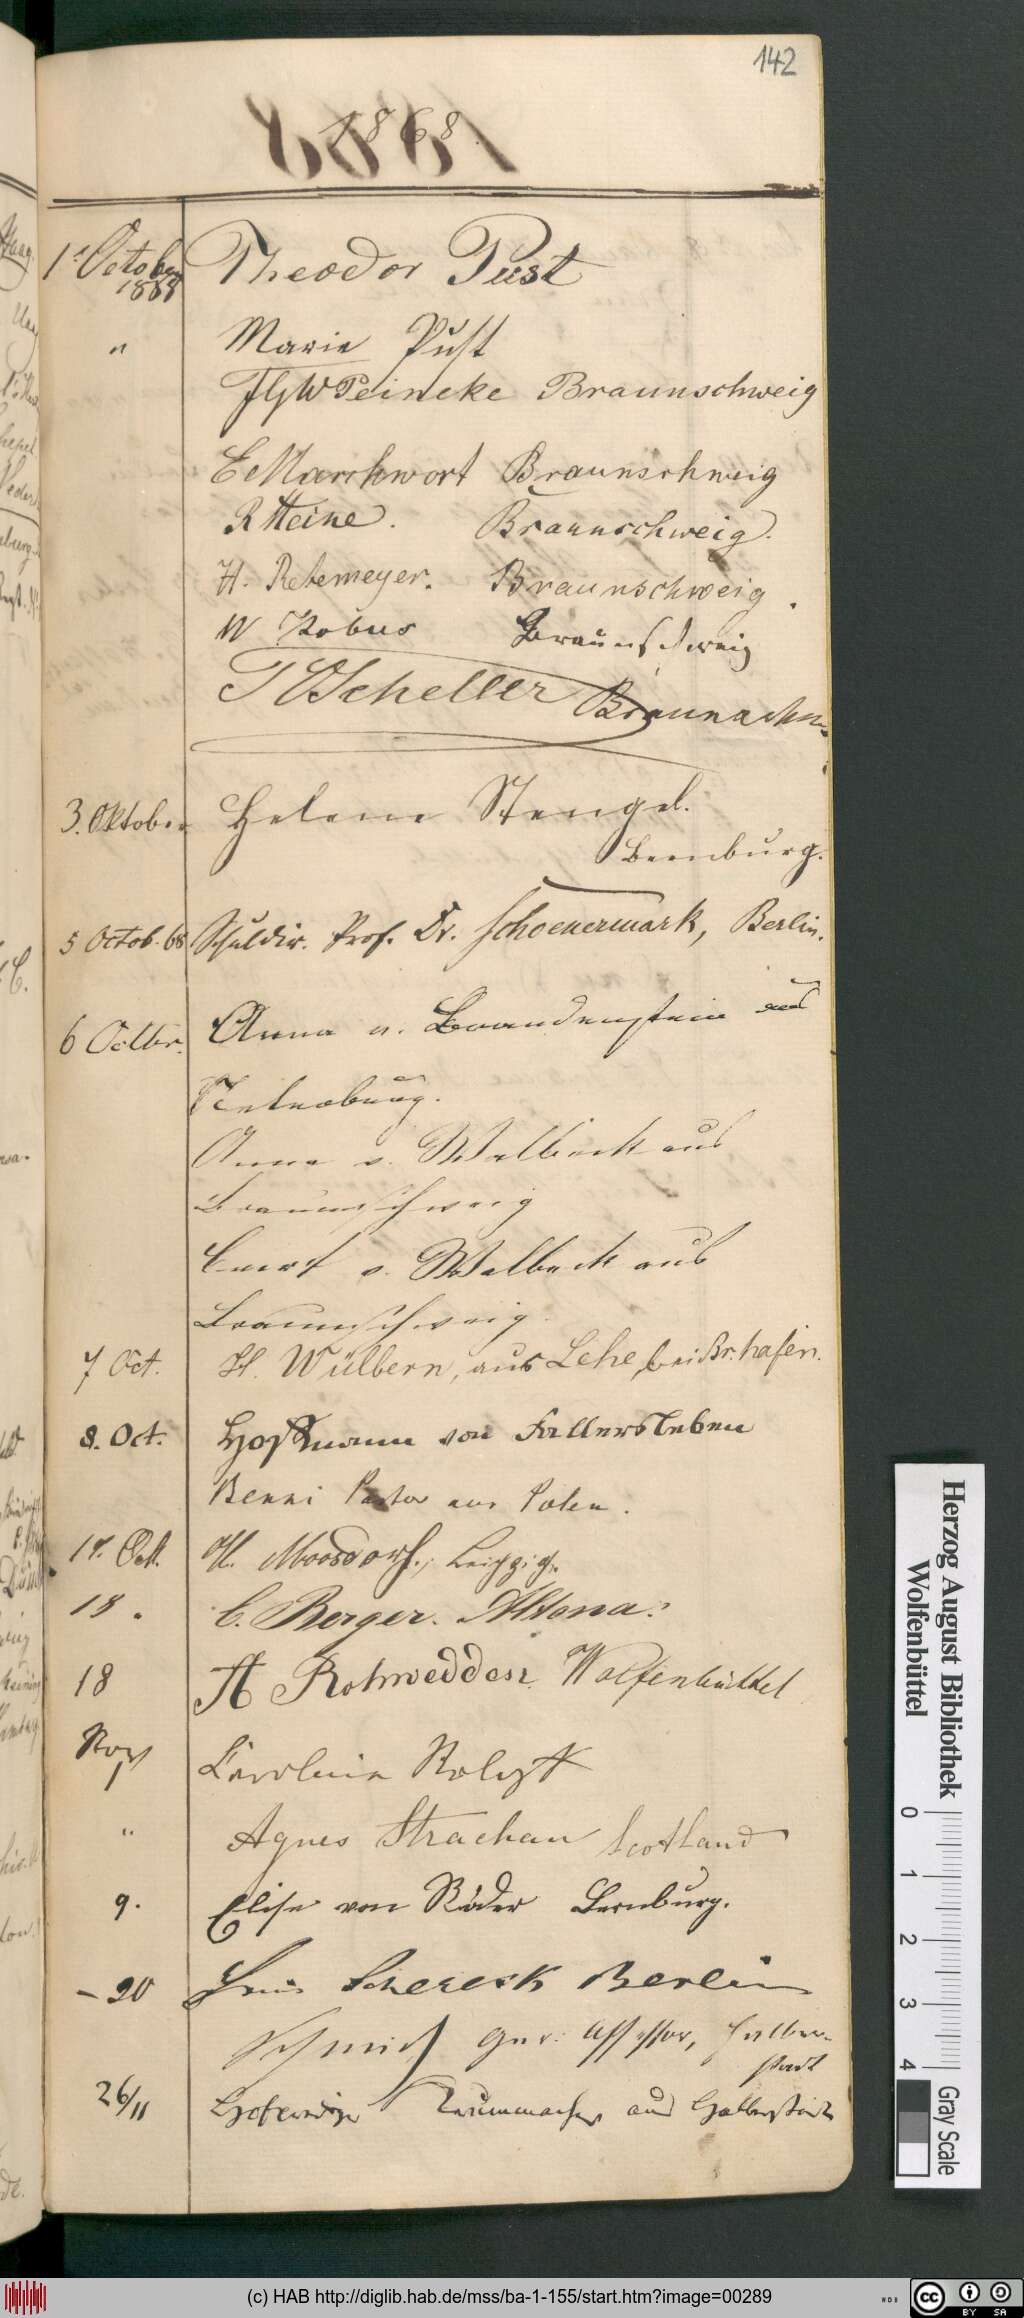 142
1868.
1t October Theodor Pust
1868
" Marie Pust
FGW Peineke Braunschweig
E Marckwort Braunschweig
R Heine. Braunschweig.
H. Retemeyer. Braunschweig.
W Kobus Braunschweig
Scheller Braunschw
3. Oktober Helene Stengel.
Bernburg.
5 Octob. 68 Schuldir. Prof. Dr. Schoenermark, Berlin.
6 Octbr. Anna v. Brandenstein aus
Anna v. Walbeck aus
Braunschweig
Curt v. Walbeck aus
Braunschweig.
7 Oct. H. Wülbern, aus Lehe bei Br.hafen.
8. Oct. Hoffmann von Fallersleben
Benni Pastor aus Polen.
17. Oct. H. Moosdorf., Leipzig.
18 " C. Berger. Altona.
18 H Rohwedder Wolfenbüttel
Nov
1 Caroline
" Agnes Strachan Scotland
9. Elise von Röder Bernburg.
- 20 Berlin
Schmidt Ger. Assessor, Halber-
stadt
26/11 Hedwig Krummacher aus Halberstadt
Herzog August Bibliothek
Wolfenbüttel
0 1 2 3 4
Gray Scale
(c) HAB http://diglib.hab.de/mss/ba-1-155/start.htm?image=00289
cc BY SA